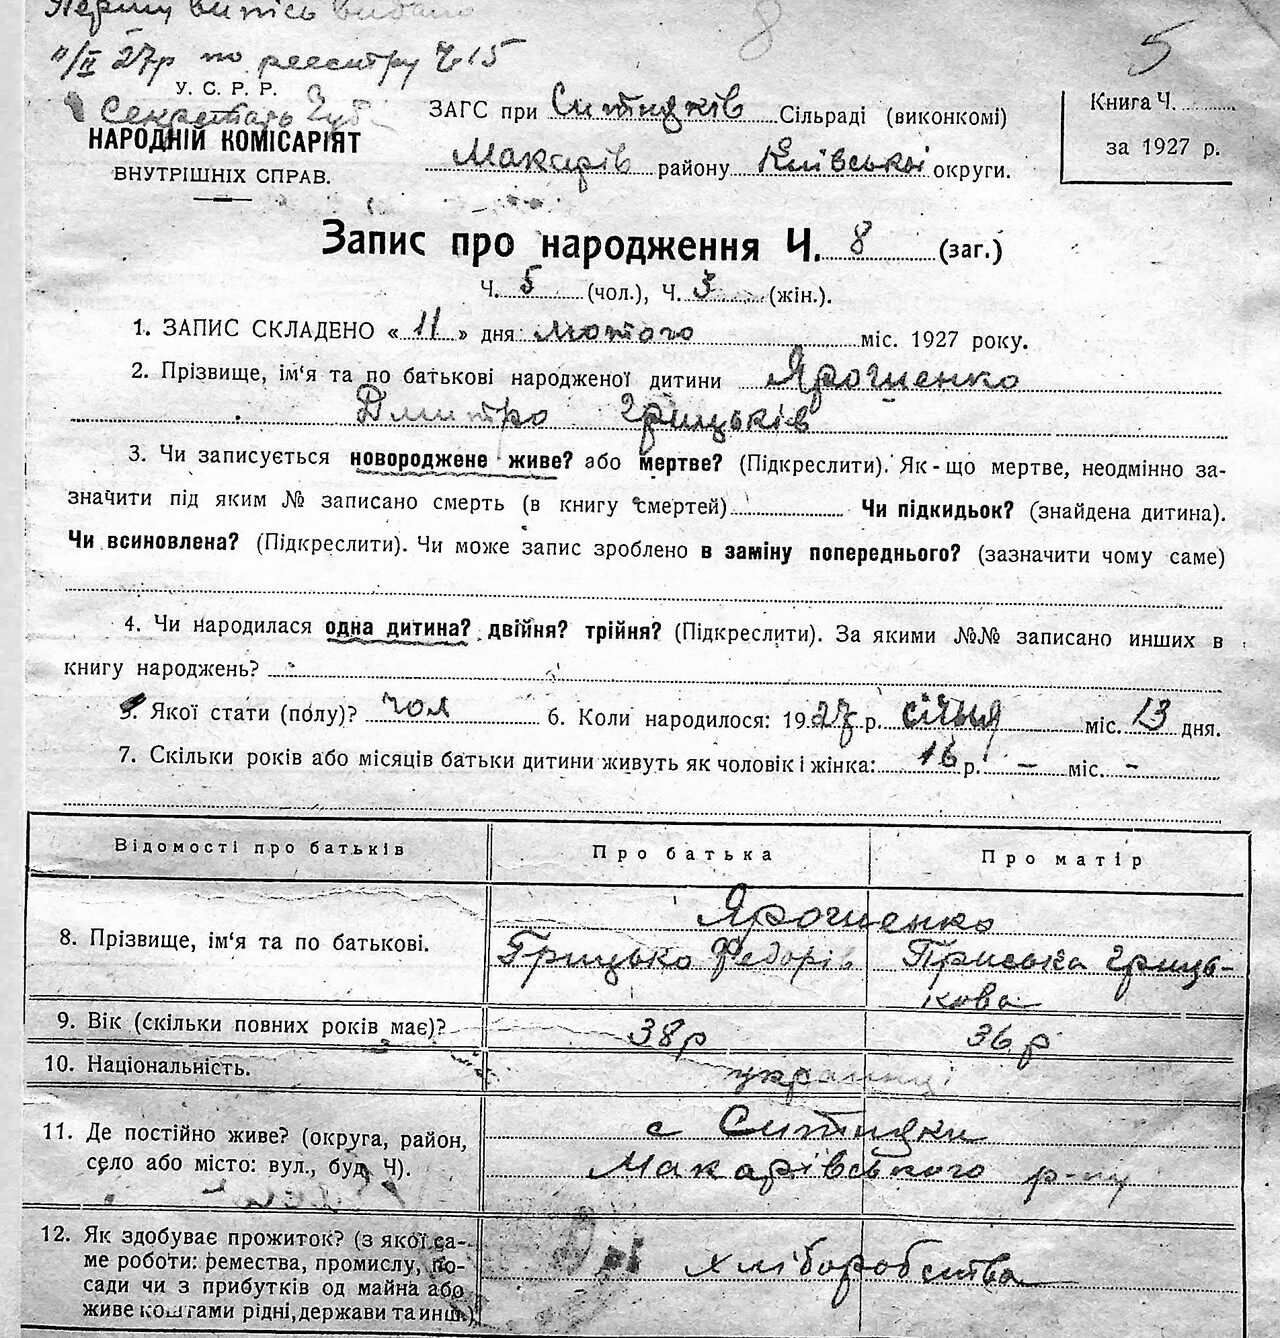 Першу випись видано
11/II 27р по реєстру Ч 15
Секретарь
8
5
У. С. Р. Р.
НАРОДНІЙ КОМІСАРІЯТ
ВНУТРІШНІХ СПРАВ.
ЗАГС при Ситняків Сільраді (виконкомі)
Макарів району Київської округи.
Книга Ч. ........
за 1927 р.
Запис про народження Ч. 8 (заг.)
Ч. 5 (чол.), Ч. 3 (жін.).
1. ЗАПИС СКЛАДЕНО «11» дня лютого міс. 1927 року.
2. Прізвище, ім‘я та по батькові народженої дитини Ярошенко
Дмитро Грицьків
3. Чи записується новороджене живе? або мертве? (Підкреслити). Як-що мертве, неодмінно за-
значити під яким № записано смерть (в книгу смертей) ........ Чи підкидьок? (знайдена дитина).
Чи всиновлена? (Підкреслити). Чи може запис зроблено в заміну попереднього? (зазначити чому саме)
4. Чи народилася одна дитина? двійня? трійня? (Підкреслити). За якими №№ записано инших в
книгу народжень?
5. Якої стати (полу)? чол 6. Коли народилося: 1927 р. січня міс. 13 дня.
7. Скільки років або місяців батьки дитини живуть як чоловік і жінка: 16 р. – міс. –
Відомості про батьків Про батька Про матір
Ярошенко
8. Прізвище, ім‘я та по батькові. Грицько Федорів Приська Гриць-
кова
9. Вік (скільки повних років має)? 38 р 36 р
10. Національність. українці
11. Де постійно живе? (округа, район, с Ситняки
село або місто: вул., буд. Ч). Макарівського р-ну
12. Як здобуває прожиток? (з якої са-
ме роботи: ремества, промислу, по- хліборобства
сади чи з прибутків од майна або
живе коштами рідні, держави та инш.)